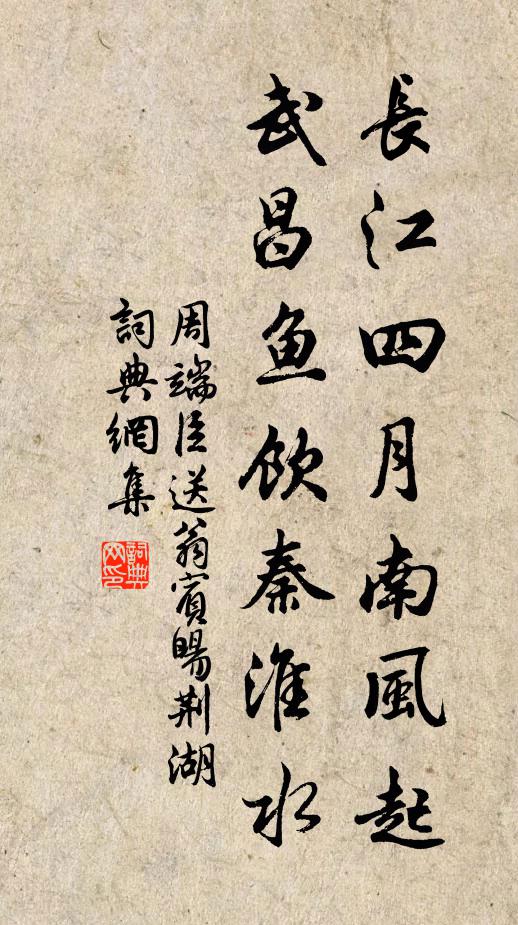 長江四月南風起
武昌鱼飲秦淮水
周端臣送翁賓暘荆湖
詞典網集
詞典網印